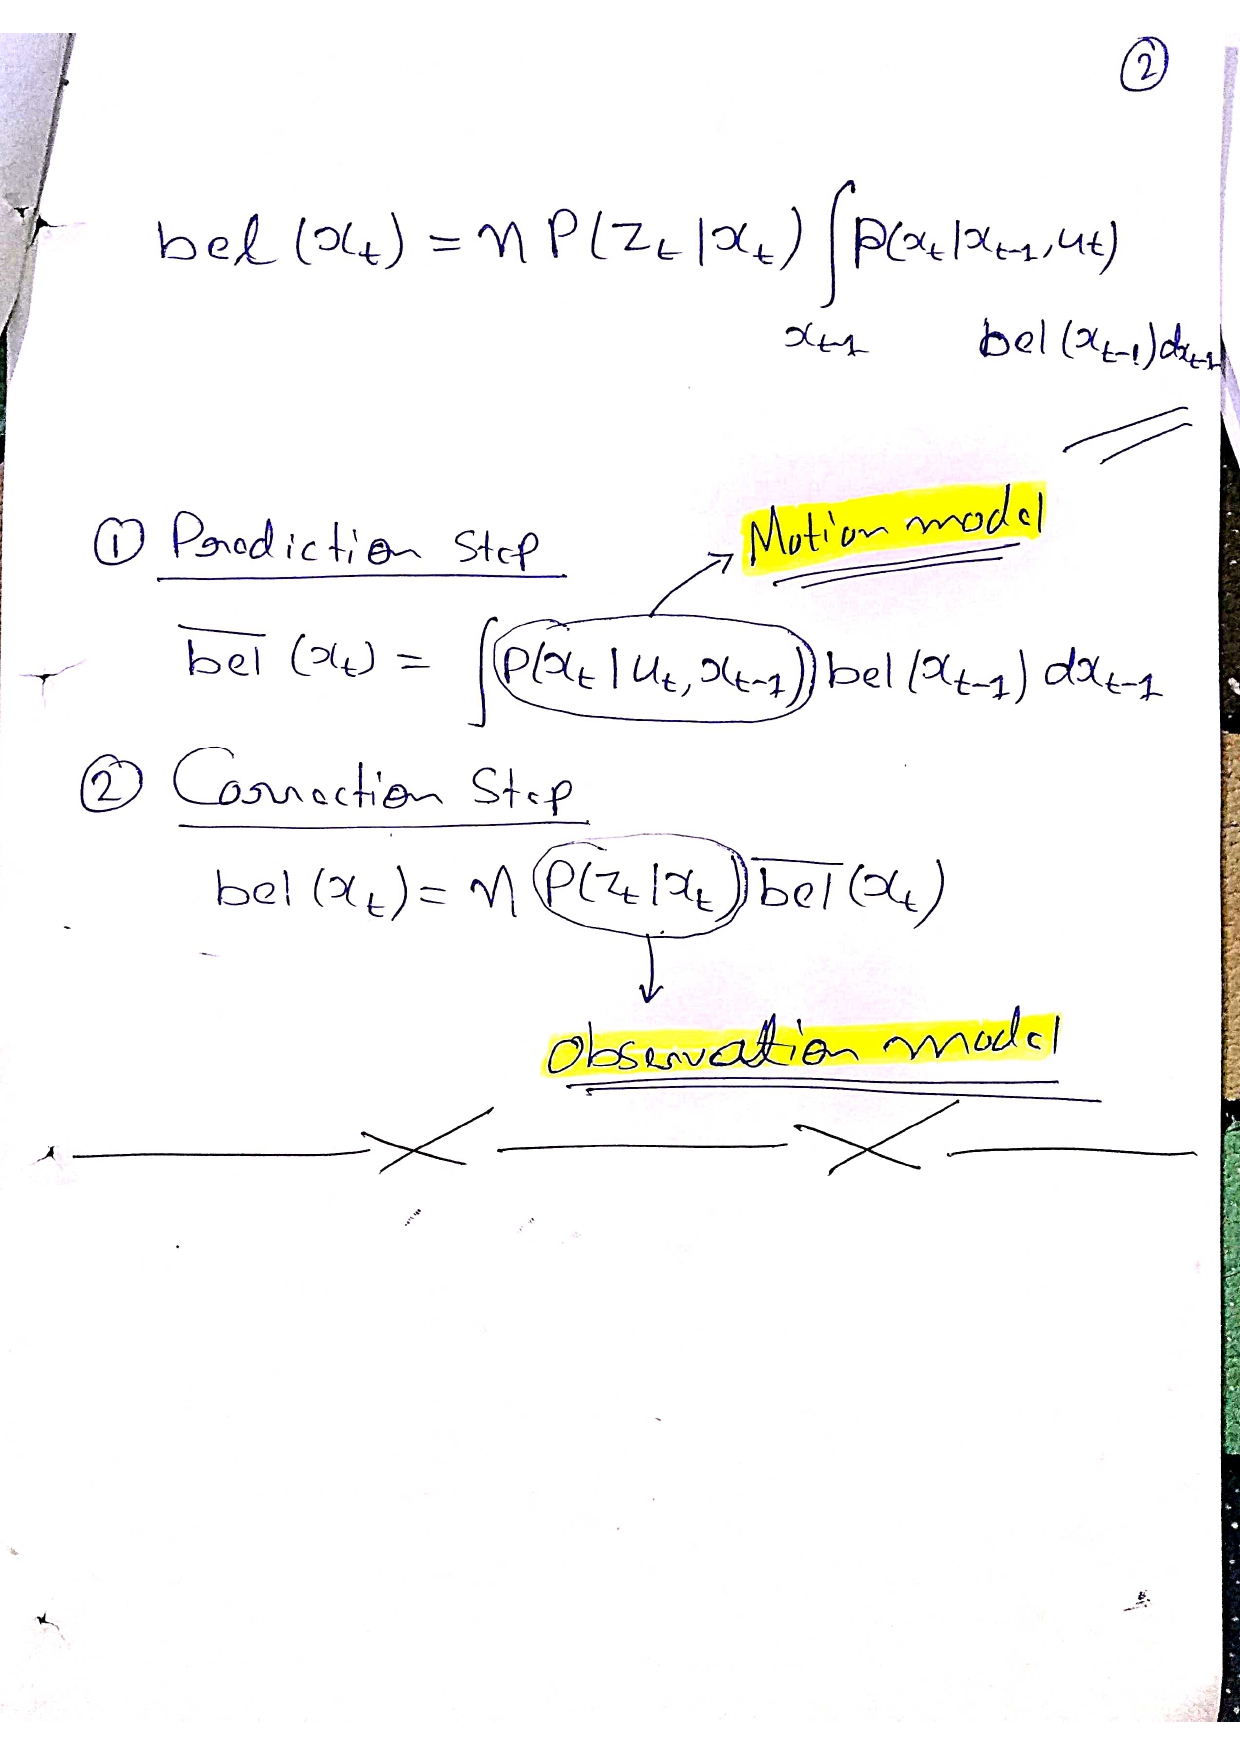 ②
bel (x_t) = η P(z_t | x_t) ∫ P(x_t | x_{t-1}, u_t)
x_{t-1} bel (x_{t-1}) dx_{t-1}
① Prediction Step
Motion model
b̅e̅l̅ (x_t) = ∫ P(x_t | u_t, x_{t-1}) bel (x_{t-1}) dx_{t-1}
② Correction Step
bel (x_t) = η P(z_t | x_t) b̅e̅l̅ (x_t)
Observation model